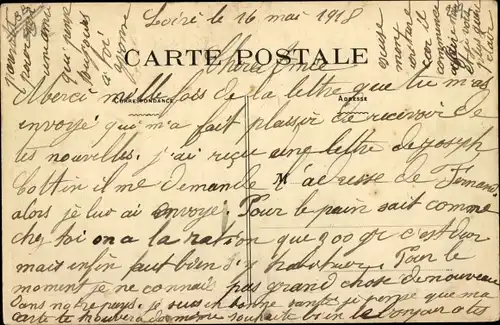 Loiré le 16 mai 1918
CARTE POSTALE
Chère Amie
CORRESPONDANCE
ADRESSE
Merci mille fois de la lettre que tu m'as
envoyé qui m'a fait plaisir de recevoir de
tes nouvelles. j'ai reçue une lettre de joseph
Cottin il me demande l'adresse de Fernand
alors je lui ai envoyé. Pour le pain sait comme
chez toi on a la ration que 200 gr c'est dur
mait enfin faut bien s'y habituer. Pour le
moment je ne connais pas grand chose de nouveau
dans notre pays. je suis en bonne santé je pense que ma
carte te trouvera de même
une amie
qui pense
toujours
à toi
Yvonne
excuse
mon
écriture
car il